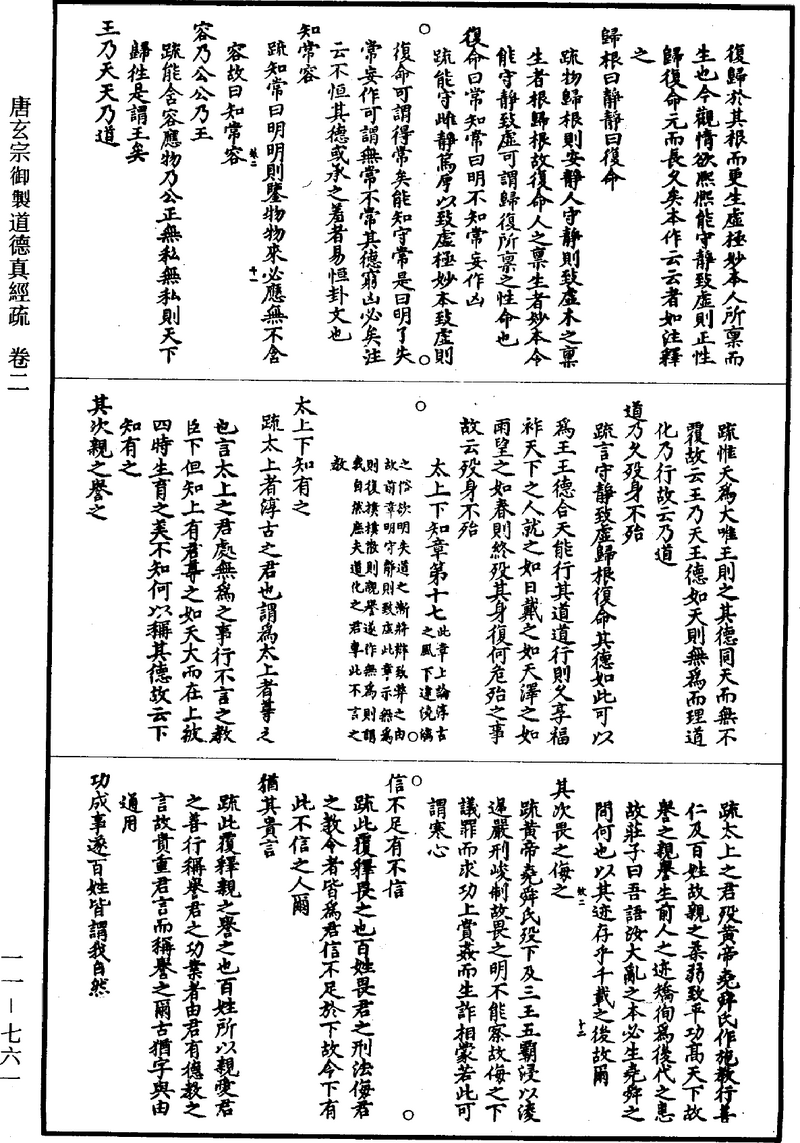 復歸於其根而更生虛極妙本人所稟而
生也今觀情欲熙熙能守靜致虛則正性
歸復命元而長久矣本作云云者如注釋
之
歸根曰靜靜曰復命
疏物歸根則安靜人守靜則致虛木之稟
生者根歸根故復命人之稟生者妙本今
能守靜致虛可謂歸復所稟之性命也
復命曰常知常曰明不知常妄作凶
疏能守雌靜篤厚以致虛極妙本致虛則
復命可謂得常矣能知守常是曰明了失
常妄作可謂無常不常其德窮凶必矣注
云不恒其德或承之羞者易恒卦文也
知常容
疏知常曰明明則鑒物物來必應無不含
容故曰知常容
效二
十一
容乃公公乃王
疏能含容應物乃公正無私無私則天下
歸往是謂王矣
王乃天天乃道
疏惟天為大唯王則之其德同天而無不
覆故云王乃天王德如天則無為而理道
化乃行故云乃道
道乃久歿身不殆
疏言守靜致虛歸根復命其德如此可以
為王王德合天能行其道道行則久享福
祚天下之人就之如日戴之如天澤之如
雨望之如春則終歿其身復何危殆之事
故云歿身不殆
太上下知章第十七
此章上論淳古
之風下逮澆漓
之俗欲明失道之漸將辯致弊之由
故前章明守靜則致虛此章示無為
則復樸樸散則親譽遂作無為則謂
我自然應夫道化之君章此不言之
教
太上下知有之
疏太上者淳古之君也謂為太上者尊之
也言太上之君處無為之事行不言之教
臣下但知上有君尊之如天大而在上被
四時生育之美不知何以稱其德故云下
知有之
其次親之譽之
疏太上之君歿黃帝堯舜氏作施教行善
仁及百姓故親之柔弱致平功高天下故
譽之親譽生前人之迹矯徇為後代之患
故莊子曰吾語汝大亂之本必生堯舜之
間何也以其迹存乎千載之後故爾
效二
十二
其次畏之侮之
疏黃帝堯舜氏歿下及三王五霸浸以凌
遲嚴刑峻制故畏之明不能察故侮之下
議罪而求功上賞姦而生詐相蒙若此可
謂寒心
信不足有不信
疏此覆釋畏之也百姓畏君之刑法侮君
之教令者皆為君信不足於下故令下有
此不信之人爾
猶其貴言
疏此覆釋親之譽之也百姓所以親愛君
之善行稱譽君之功業者由君有德教之
言故貴重君言而稱譽之爾古猶字與由
通用
功成事遂百姓皆謂我自然
唐玄宗御製道德真經疏　卷二
一一－七六一